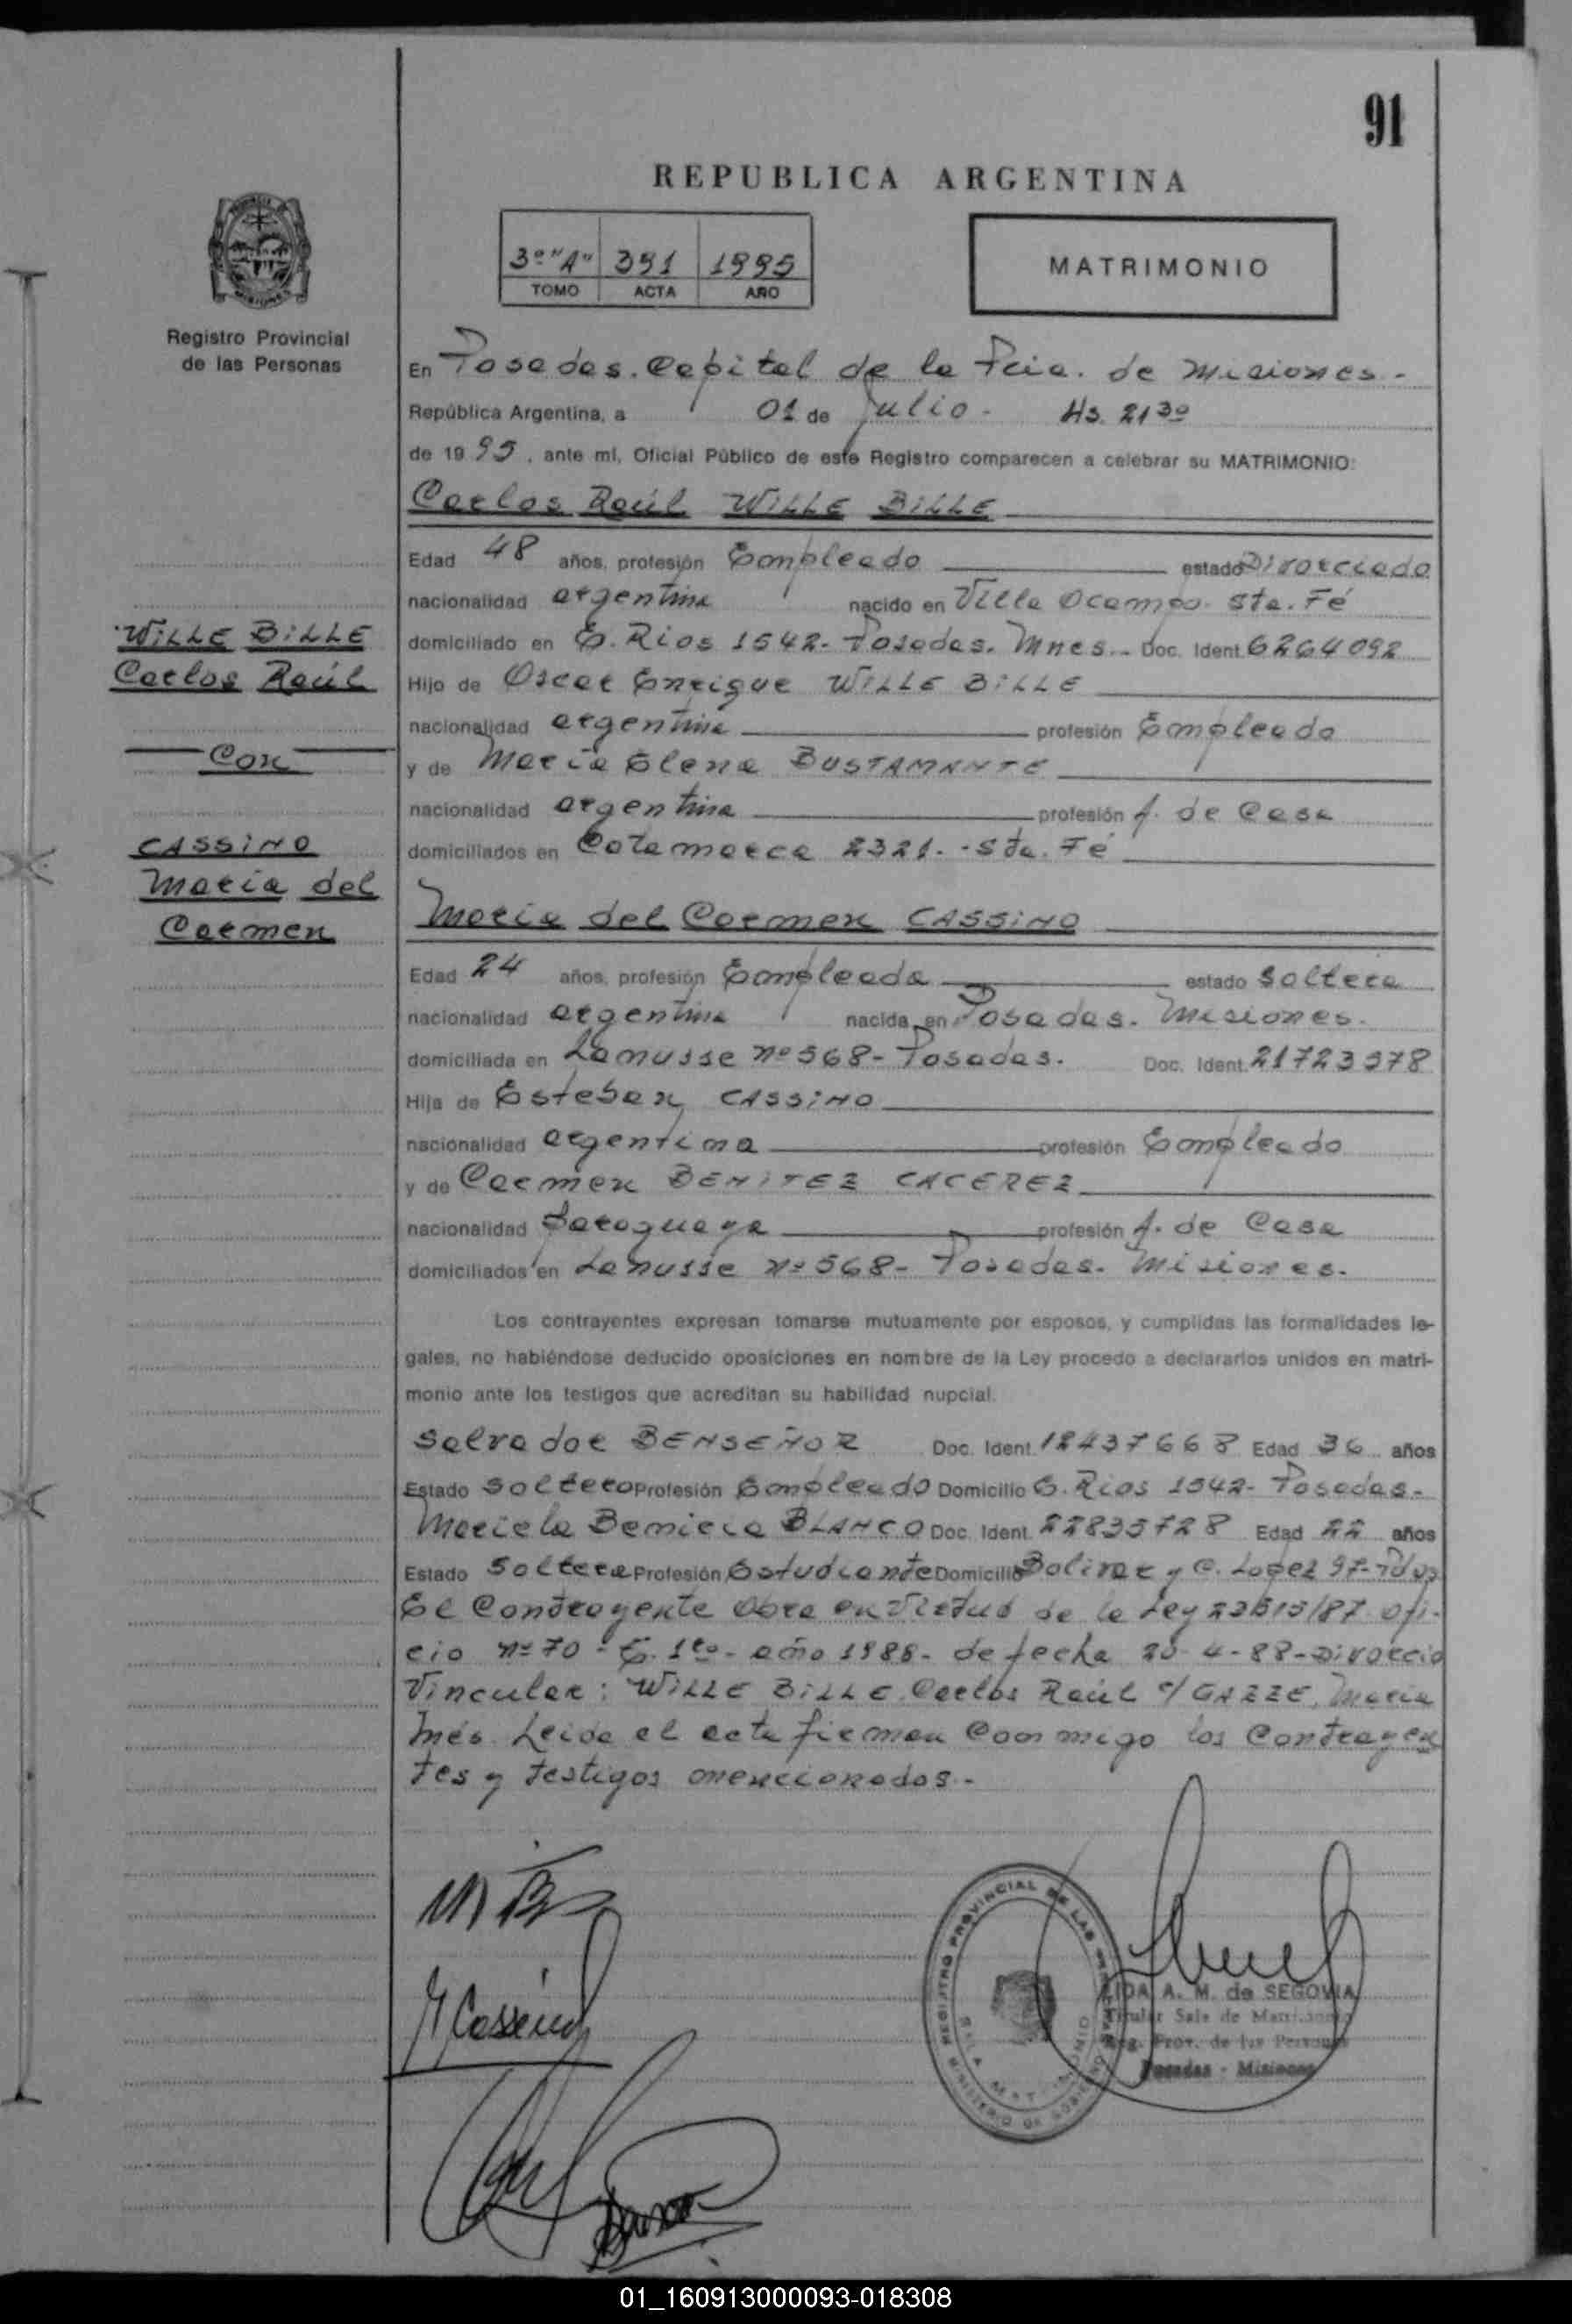 91
REPUBLICA ARGENTINA
3º "A" 391 1995
TOMO ACTA AÑO
MATRIMONIO
Registro Provincial
de las Personas
En Posadas. Capital de la Pcia. de Misiones.-
República Argentina, a 01 de Julio- Hs. 21 30
de 19 95, ante mí, Oficial Público de este Registro comparecen a celebrar su MATRIMONIO:
Carlos Raúl WILLE BILLE
Edad 48 años, profesión Empleado estado Divorciado
nacionalidad argentina nacido en Villa Ocampo. Sta. Fé
WILLE BILLE
Carlos Raúl
Con
CASSINO
María del
Carmen
domiciliado en E. Rios 1542- Posadas. Mnes.- Doc. Ident. 6264092
Hijo de Oscar Enrique WILLE BILLE
nacionalidad argentina profesión Empleado
y de María Elena BUSTAMANTE
nacionalidad argentina profesión A. de Casa
domiciliados en Catamarca 2321.- Sta. Fé
María del Carmen CASSINO
Edad 24 años, profesión Empleada estado Soltera
nacionalidad argentina nacida en Posadas. Misiones.
domiciliada en Lanusse nº 568- Posadas. Doc. Ident. 21723978
Hija de Esteban CASSINO
nacionalidad argentina profesión Empleado
y de Carmen BENITEZ CACEREZ
nacionalidad Paraguaya profesión A. de Casa
domiciliados en Lanusse nº 568- Posadas. Misiones.
Los contrayentes expresan tomarse mutuamente por esposos, y cumplidas las formalidades le-
gales, no habiéndose deducido oposiciones en nombre de la Ley procedo a declararlos unidos en matri-
monio ante los testigos que acreditan su habilidad nupcial.
Salvador BENSEÑOR Doc. Ident. 12437668 Edad 36 años
Estado Soltero Profesión Empleado Domicilio E. Rios 1542- Posadas-
Mariela Beniera BLANCO Doc. Ident. 22835728 Edad 22 años
Estado Soltera Profesión Estudiante Domicilio Bolivar y C. Lopez 97- Pdas
El Contrayente Obra en Virtud de la Ley 23515/87 ofi-
cio nº 70- E. 1ro- año 1988- de fecha 20-4-88- Divorcio
Vincular: WILLE BILLE, Carlos Raúl c/ GAZZE, María
Inés. Leída el acta firman Conmigo los Contrayen
tes y testigos mencionados.-
M Cassino
REGISTRO PROVINCIAL DE LAS PERSONAS
SALA MATRIMONIO
MINISTERIO DE GOBIERNO
A. M. de SEGOVIA
Titular Sala de Matrimonio
Reg. Prov. de las Personas
Posadas - Misiones
01_160913000093-018308